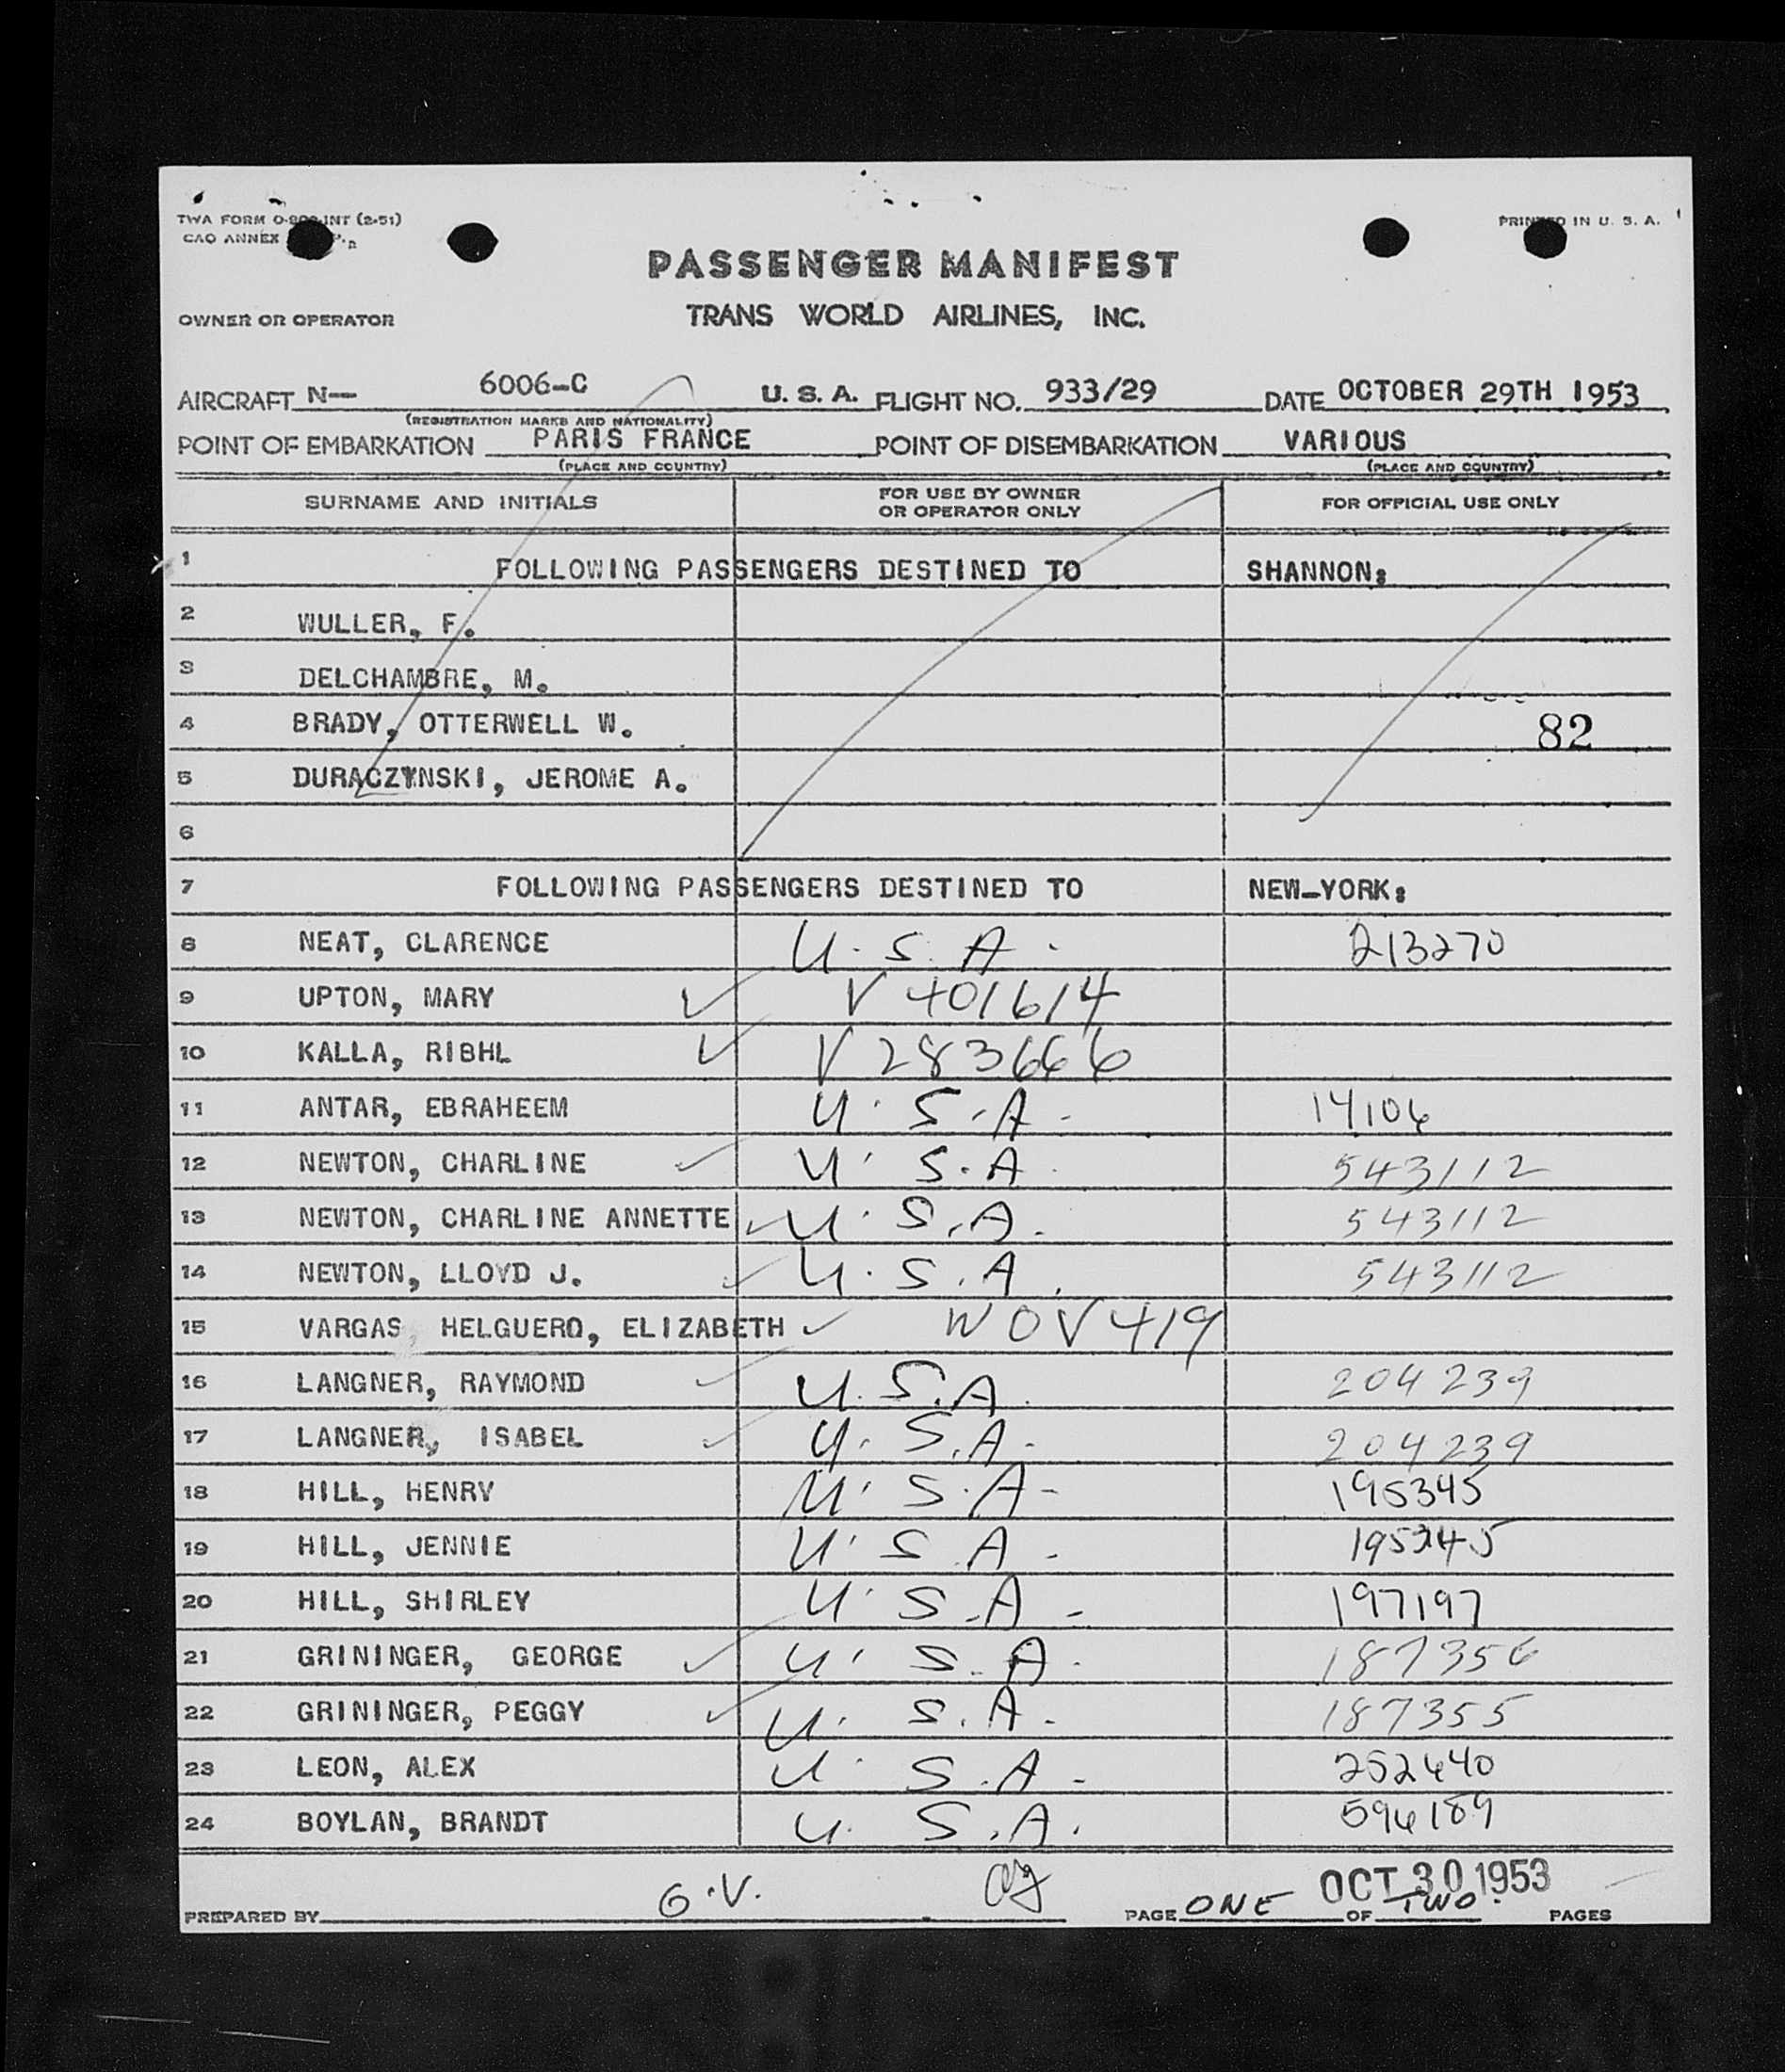 TWA FORM O-   INT (2-51)
CAO ANNEX
PRINTED IN U. S. A.
PASSENGER MANIFEST
OWNER OR OPERATOR
TRANS WORLD AIRLINES, INC.
AIRCRAFT N— 6006-C U. S. A. FLIGHT NO. 933/29 DATE OCTOBER 29TH 1953
(REGISTRATION MARKS AND NATIONALITY)
POINT OF EMBARKATION PARIS FRANCE POINT OF DISEMBARKATION VARIOUS
(PLACE AND COUNTRY) (PLACE AND COUNTRY)
SURNAME AND INITIALS FOR USE BY OWNER OR OPERATOR ONLY FOR OFFICIAL USE ONLY
1 FOLLOWING PASSENGERS DESTINED TO SHANNON:
2 WULLER, F.
3 DELCHAMBRE, M.
4 BRADY, OTTERWELL W. 82
5 DURACZYNSKI, JEROME A.
6
7 FOLLOWING PASSENGERS DESTINED TO NEW-YORK:
8 NEAT, CLARENCE U.S.A. 213270
9 UPTON, MARY ✓ V 401614
10 KALLA, RIBHL ✓ V 283666
11 ANTAR, EBRAHEEM U.S.A. 14106
12 NEWTON, CHARLINE ✓ U.S.A. 543112
13 NEWTON, CHARLINE ANNETTE ✓ U.S.A. 543112
14 NEWTON, LLOYD J. ✓ U.S.A. 543112
15 VARGAS, HELGUERO, ELIZABETH ✓ WOV 419
16 LANGNER, RAYMOND ✓ U.S.A. 204239
17 LANGNER, ISABEL ✓ U.S.A. 204239
18 HILL, HENRY U.S.A. 195345
19 HILL, JENNIE U.S.A. 195345
20 HILL, SHIRLEY U.S.A. 197197
21 GRININGER, GEORGE ✓ U.S.A. 187356
22 GRININGER, PEGGY ✓ U.S.A. 187355
23 LEON, ALEX U.S.A. 252440
24 BOYLAN, BRANDT U.S.A. 596189
OCT 30 1953
PREPARED BY G.V. PAGE ONE OF TWO. PAGES